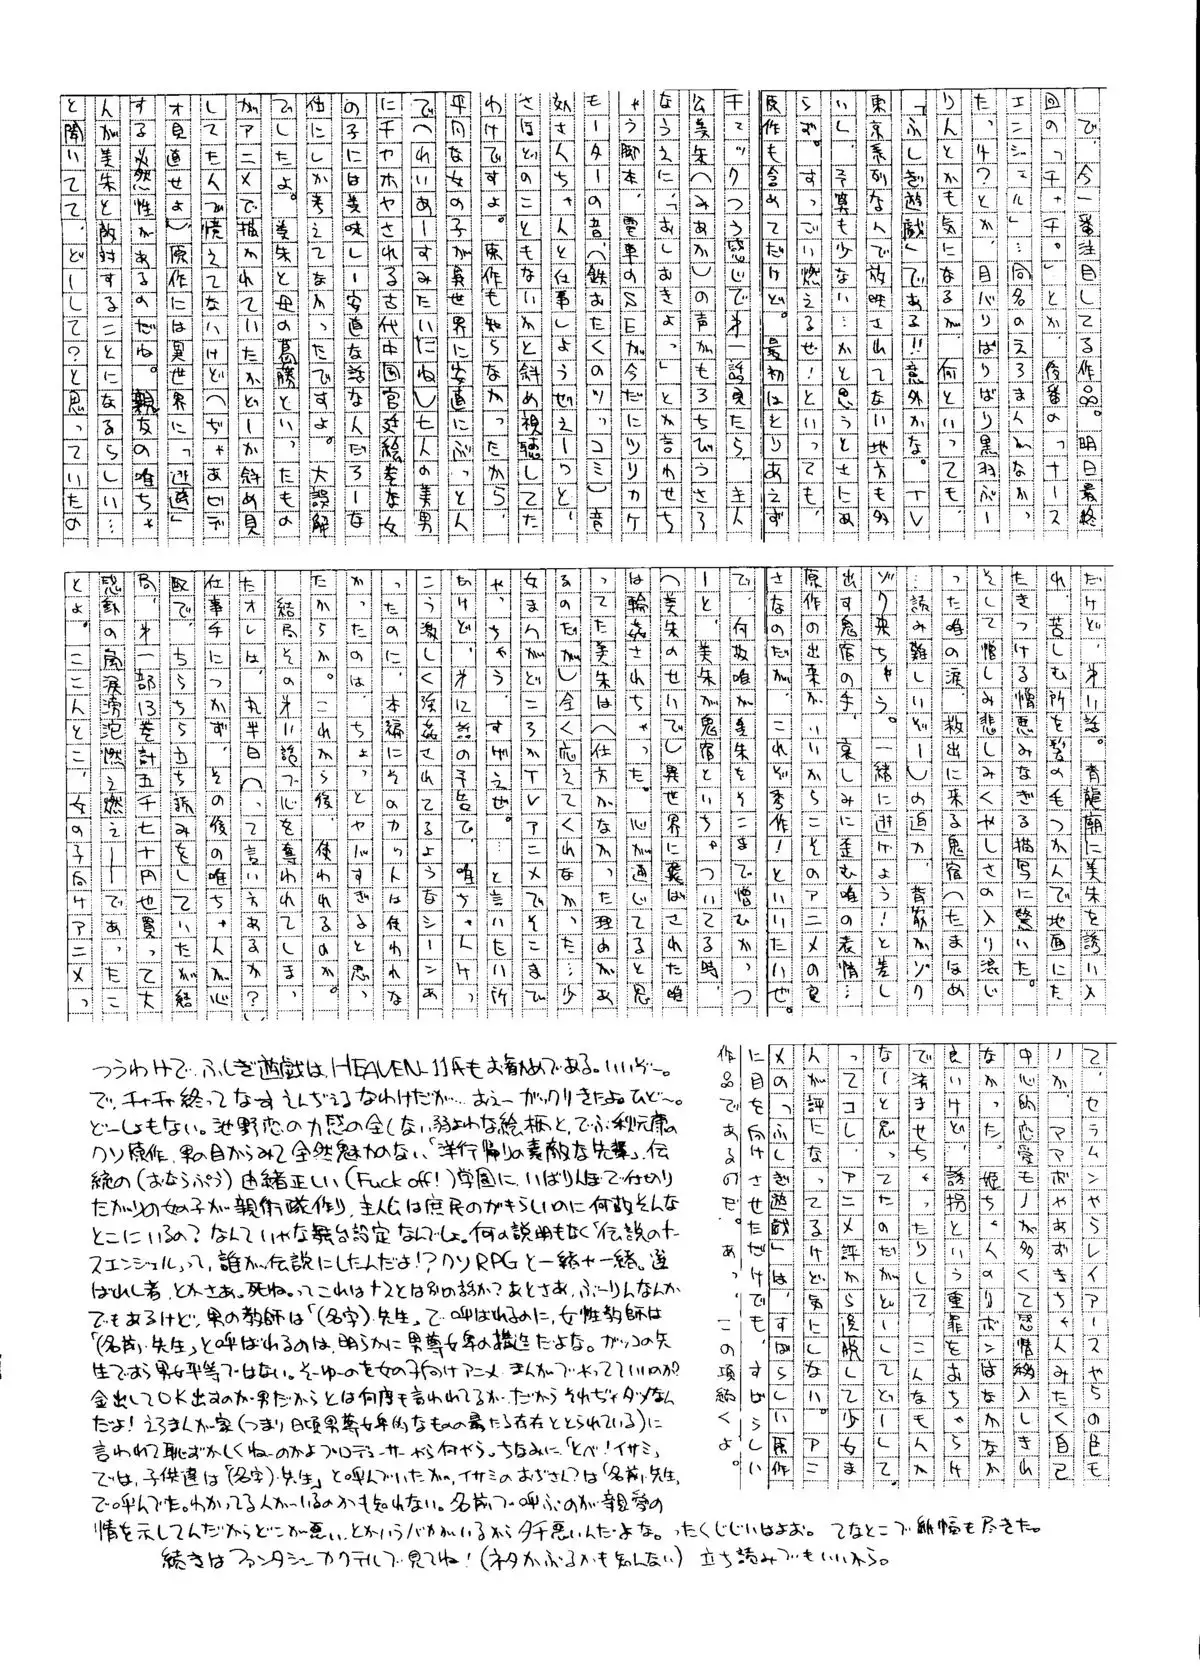 で、今一番注目してる作品。明日最終
回の「チャチャ。」とか、後番の「ナース
エンジェル」…同名のえろまんがなかっ
た、け?とか、目バリばりばり黒羽ぶー
りんとかも気になるが、何といっても、
「ふしぎ遊戯」である!!意外かな。TV
東京系列なんで放映されてない地方も多
いし、予算も少ない…かと思うとさにあ
らず。すっごい燃えるぜ!といっても、
原作も含めてだけど。最初はとりあえず
チェックつう感じで第一話見たら、主人
公美朱(みあか)の声がもろちびうさろ
なうえに、「おしおきよっ」とか言わせち
ゃう脚本、電車のSEが今だにツリカケ
モーターの音(鉄おたくのツッコミ)音
効さんちゃんと仕事しようぜえーっと、
さほどのこともないかと斜め視聴してた
わけですよ。原作も知らなかったから、
平凡な女の子が異世界に安直にぶっとん
で(れいあーすみたいにね)七人の美男
にチヤホヤされる古代中国宮廷絵巻な女
の子には美味しー安直な話なんだろーな
位にしか考えてなかったですよ。大誤解
でしたよ。美朱と母の葛藤といったもの
がアニメで描かれていたかどーか斜め見
してたんで憶えてないけど(ぢゃあビデ
オ見直せよ)原作には異世界に「逃避」
する必然性があるのだね。親友の唯ちゃ
んが美朱と敵対することになるらしい…
と聞いてて、どーして?と思っていたの
だけど、第11話。青龍廟に美朱を誘い入
れ、苦しむ所を髪の毛つかんで地面にた
たきつける憎悪みなぎる描写に驚いた。
そして憎しみ悲しみくやしさの入り混じ
った唯の涙、救出に来る鬼宿(たまほめ
…読み難しいぞー)の迫力、背筋がゾク
ゾク来ちゃう。一緒に逃げよう!と差し
出す鬼宿の手、哀しみに歪む唯の表情…
原作の出来がいいからこそのアニメの良
さなのだが、これぞ秀作!といいたいぜ。
で、何故唯が美朱をそこまで憎むかっつ
ーと、美朱が鬼宿といちゃついてる時、
(美朱のせいで)異世界に飛ばされた唯
は輪姦されちゃった。心が通じてると思
ってた美朱は(仕方なかった理由があ
るのだが)全く応えてくれなかった…少
女まんがどころかTVアニメでそこまで
やっちゃう、すげえぜ。と言いたい所
だけど、第12話の予告で、唯ちゃんけっ
こう激しく強姦されてるようなシーンあ
ったのに、本編にそのカットは使われな
かったのは、ちょっとヤバすぎると思っ
たからか。これから後、使われるのか。
結局その第11話で心を奪われてしまっ
たオレは、丸半日(って言い方あるか?)
仕事手につかず、その後の唯ちゃんが心
配で、ちらちら立ち読みをしていたが結
局、第一部13巻計五千七十円也買って大
感動の嵐涙滂沱燃え燃えーーであったこ
とよ。ここんとこ、女の子向けアニメっ
て、セラムンやらレイアースやらの色も
中心的恋愛モノが多くて感情移入しきれ
なかった。姫ちゃんのリボンはなかなか
良いけど、誘拐という重罪をおちゃらけ
で済ませちゃったりして、こんなもんか
に目を向けさせただけでも、すばらしい
作品であるのだ。あっ、この項続くよ。
つうわけで、ふしぎ遊戯は、HEAVEN-11氏もお勧めである。いいぞ〜。
で、チャチャ終ってなーすえんぢぇるなわけだが…おえーがっクリきたよねひど〜。
どーしょもない。池野恋の力感の全くない弱よわな絵柄と、でぶ秋元康の
クソ原作、男の目からみて全然魅力のない、「洋行帰りの素敵な先輩」、伝
統の(おならぷぅ)由緒正しい(Fuck off!)学園に、いばりんぼで仕切り
たがりの女の子が親衛隊作り、主人公は庶民のがきらしいのに何故そんな
とこにいるの?なんていやな舞台設定なんでしょ。何の説明もなく「伝説のナー
スエンジェル」って、誰が伝説にしたんだよ!?クソRPGと一緒や一緒。選
ばれし者、とかさあ。死ね。ってこれはナースとは別の話か?あとさあ、ぶーりんなんか
でもあるけど、男の教師は「(名字)先生」で呼ばれるのに、女性教師は
「(名前)先生」と呼ばれるのは、明らかに男尊女卑の構造だよな。ガッコの先
生ですら男女平等ではない。そーゆーのを女の子向けアニメ、まんがでやってていいのか?
金出してOK出すのが男だからとは何度も言われてるが、だからそれぢゃダメなん
だよ!えろまんが家(つまり日頃男尊女卑的なものの最たる存在ととられている)に
言われて恥ずかしくねーのかよプロデューサーやら何やら。ちなみに「とべ!イサミ」
では、子供達は「(名字)先生」と呼んでいたが、イサミのおぢさん?は「名前」先生
で呼んでた。わかってる人がいるのかも知れない。名前で呼ぶのが親愛の
情を示してんだからどこが悪い、とかいうバカがいるからタチ悪いんだよな。ったくじじいはよお。 てなとこで紙幅も尽きた。
続きはファンタジーカクテルで見てね!(ネタがぶるかも知んない) 立ち読みでもいいから。